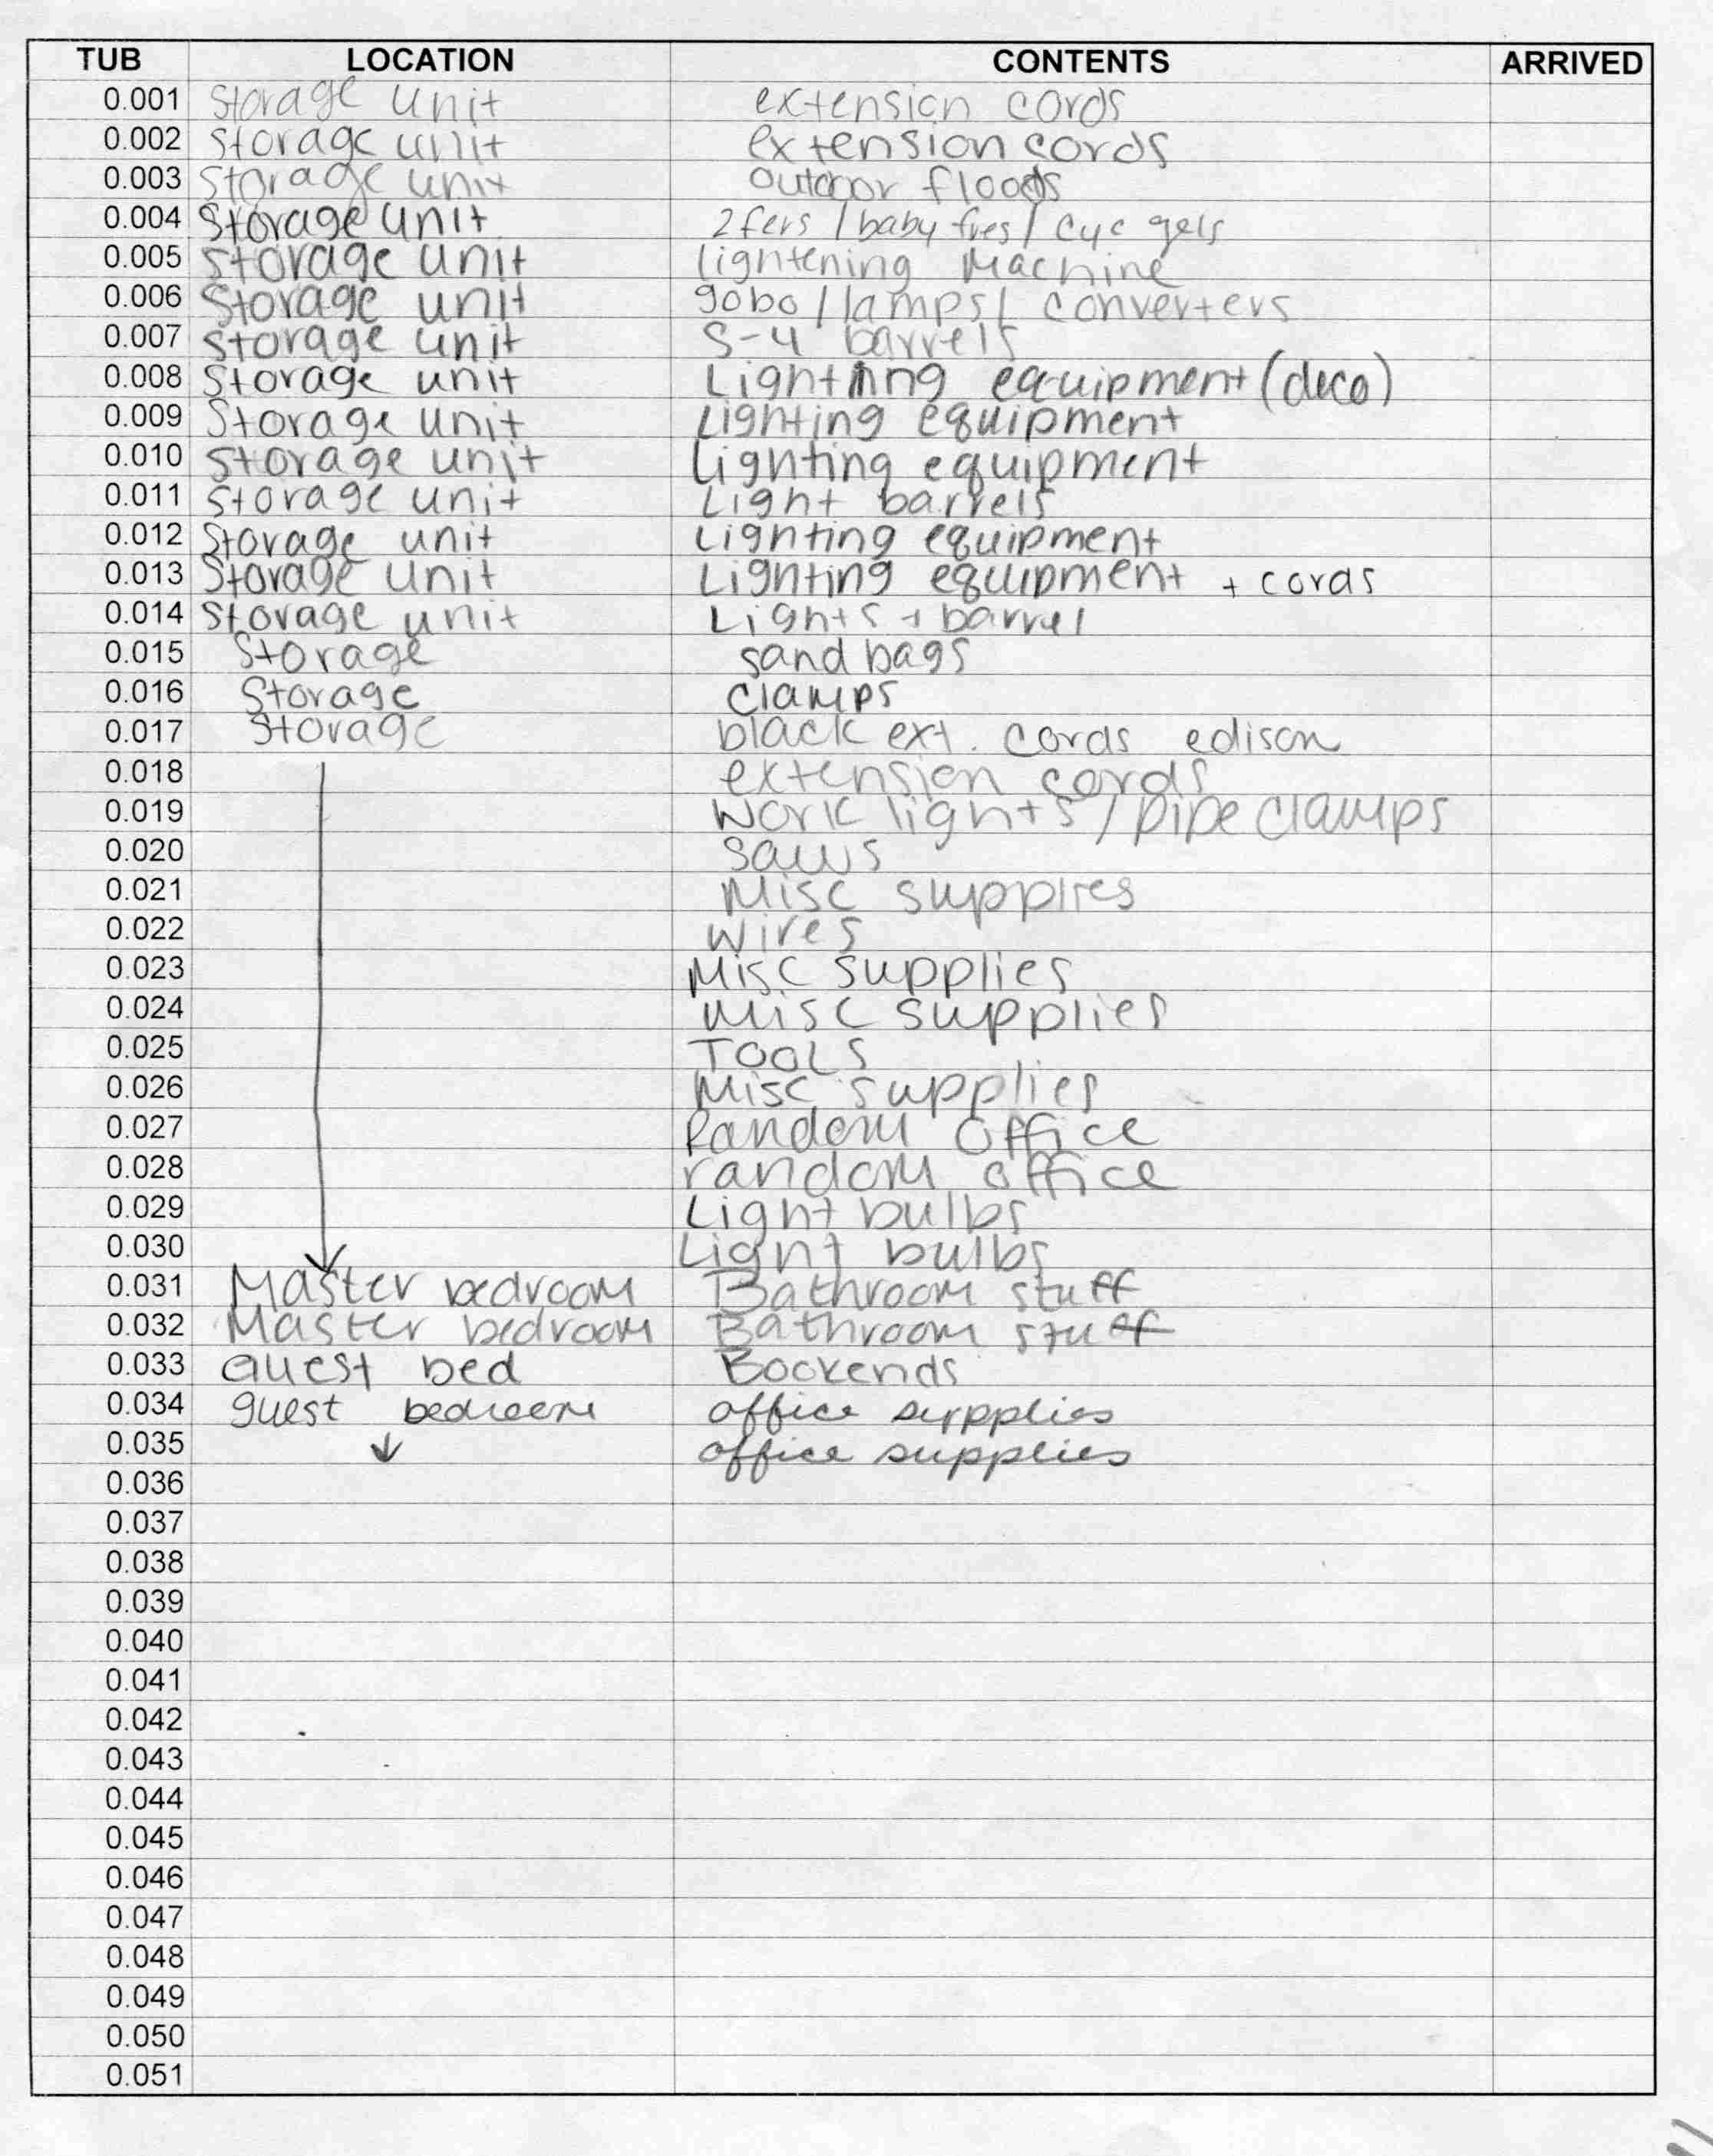 TUB LOCATION CONTENTS ARRIVED
0.001 Storage unit extension cords
0.002 Storage unit extension cords
0.003 Storage unit outdoor floods
0.004 Storage unit 2fers / baby fres / cyc gels
0.005 Storage unit lightening Machine
0.006 Storage unit gobo / lamps / converters
0.007 Storage unit S-4 barrels
0.008 Storage unit Lighting equipment (deco)
0.009 Storage unit Lighting equipment
0.010 Storage unit Lighting equipment
0.011 Storage unit Light barrels
0.012 Storage unit Lighting equipment
0.013 Storage unit Lighting equipment + cords
0.014 Storage unit Lights + barrel
0.015 Storage sand bags
0.016 Storage clamps
0.017 Storage black ext. cords edison
0.018 extension cords
0.019 Work lights / pipe clamps
0.020 Saws
0.021 Misc supplies
0.022 Wires
0.023 Misc supplies
0.024 Misc supplies
0.025 TOOLS
0.026 Misc supplies
0.027 Random Office
0.028 random office
0.029 Light bulbs
0.030 Light bulbs
0.031 Master bedroom Bathroom stuff
0.032 Master bedroom Bathroom stuff
0.033 Guest bed Bookends
0.034 guest bedroom office supplies
0.035 ↓ office supplies
0.036
0.037
0.038
0.039
0.040
0.041
0.042
0.043
0.044
0.045
0.046
0.047
0.048
0.049
0.050
0.051